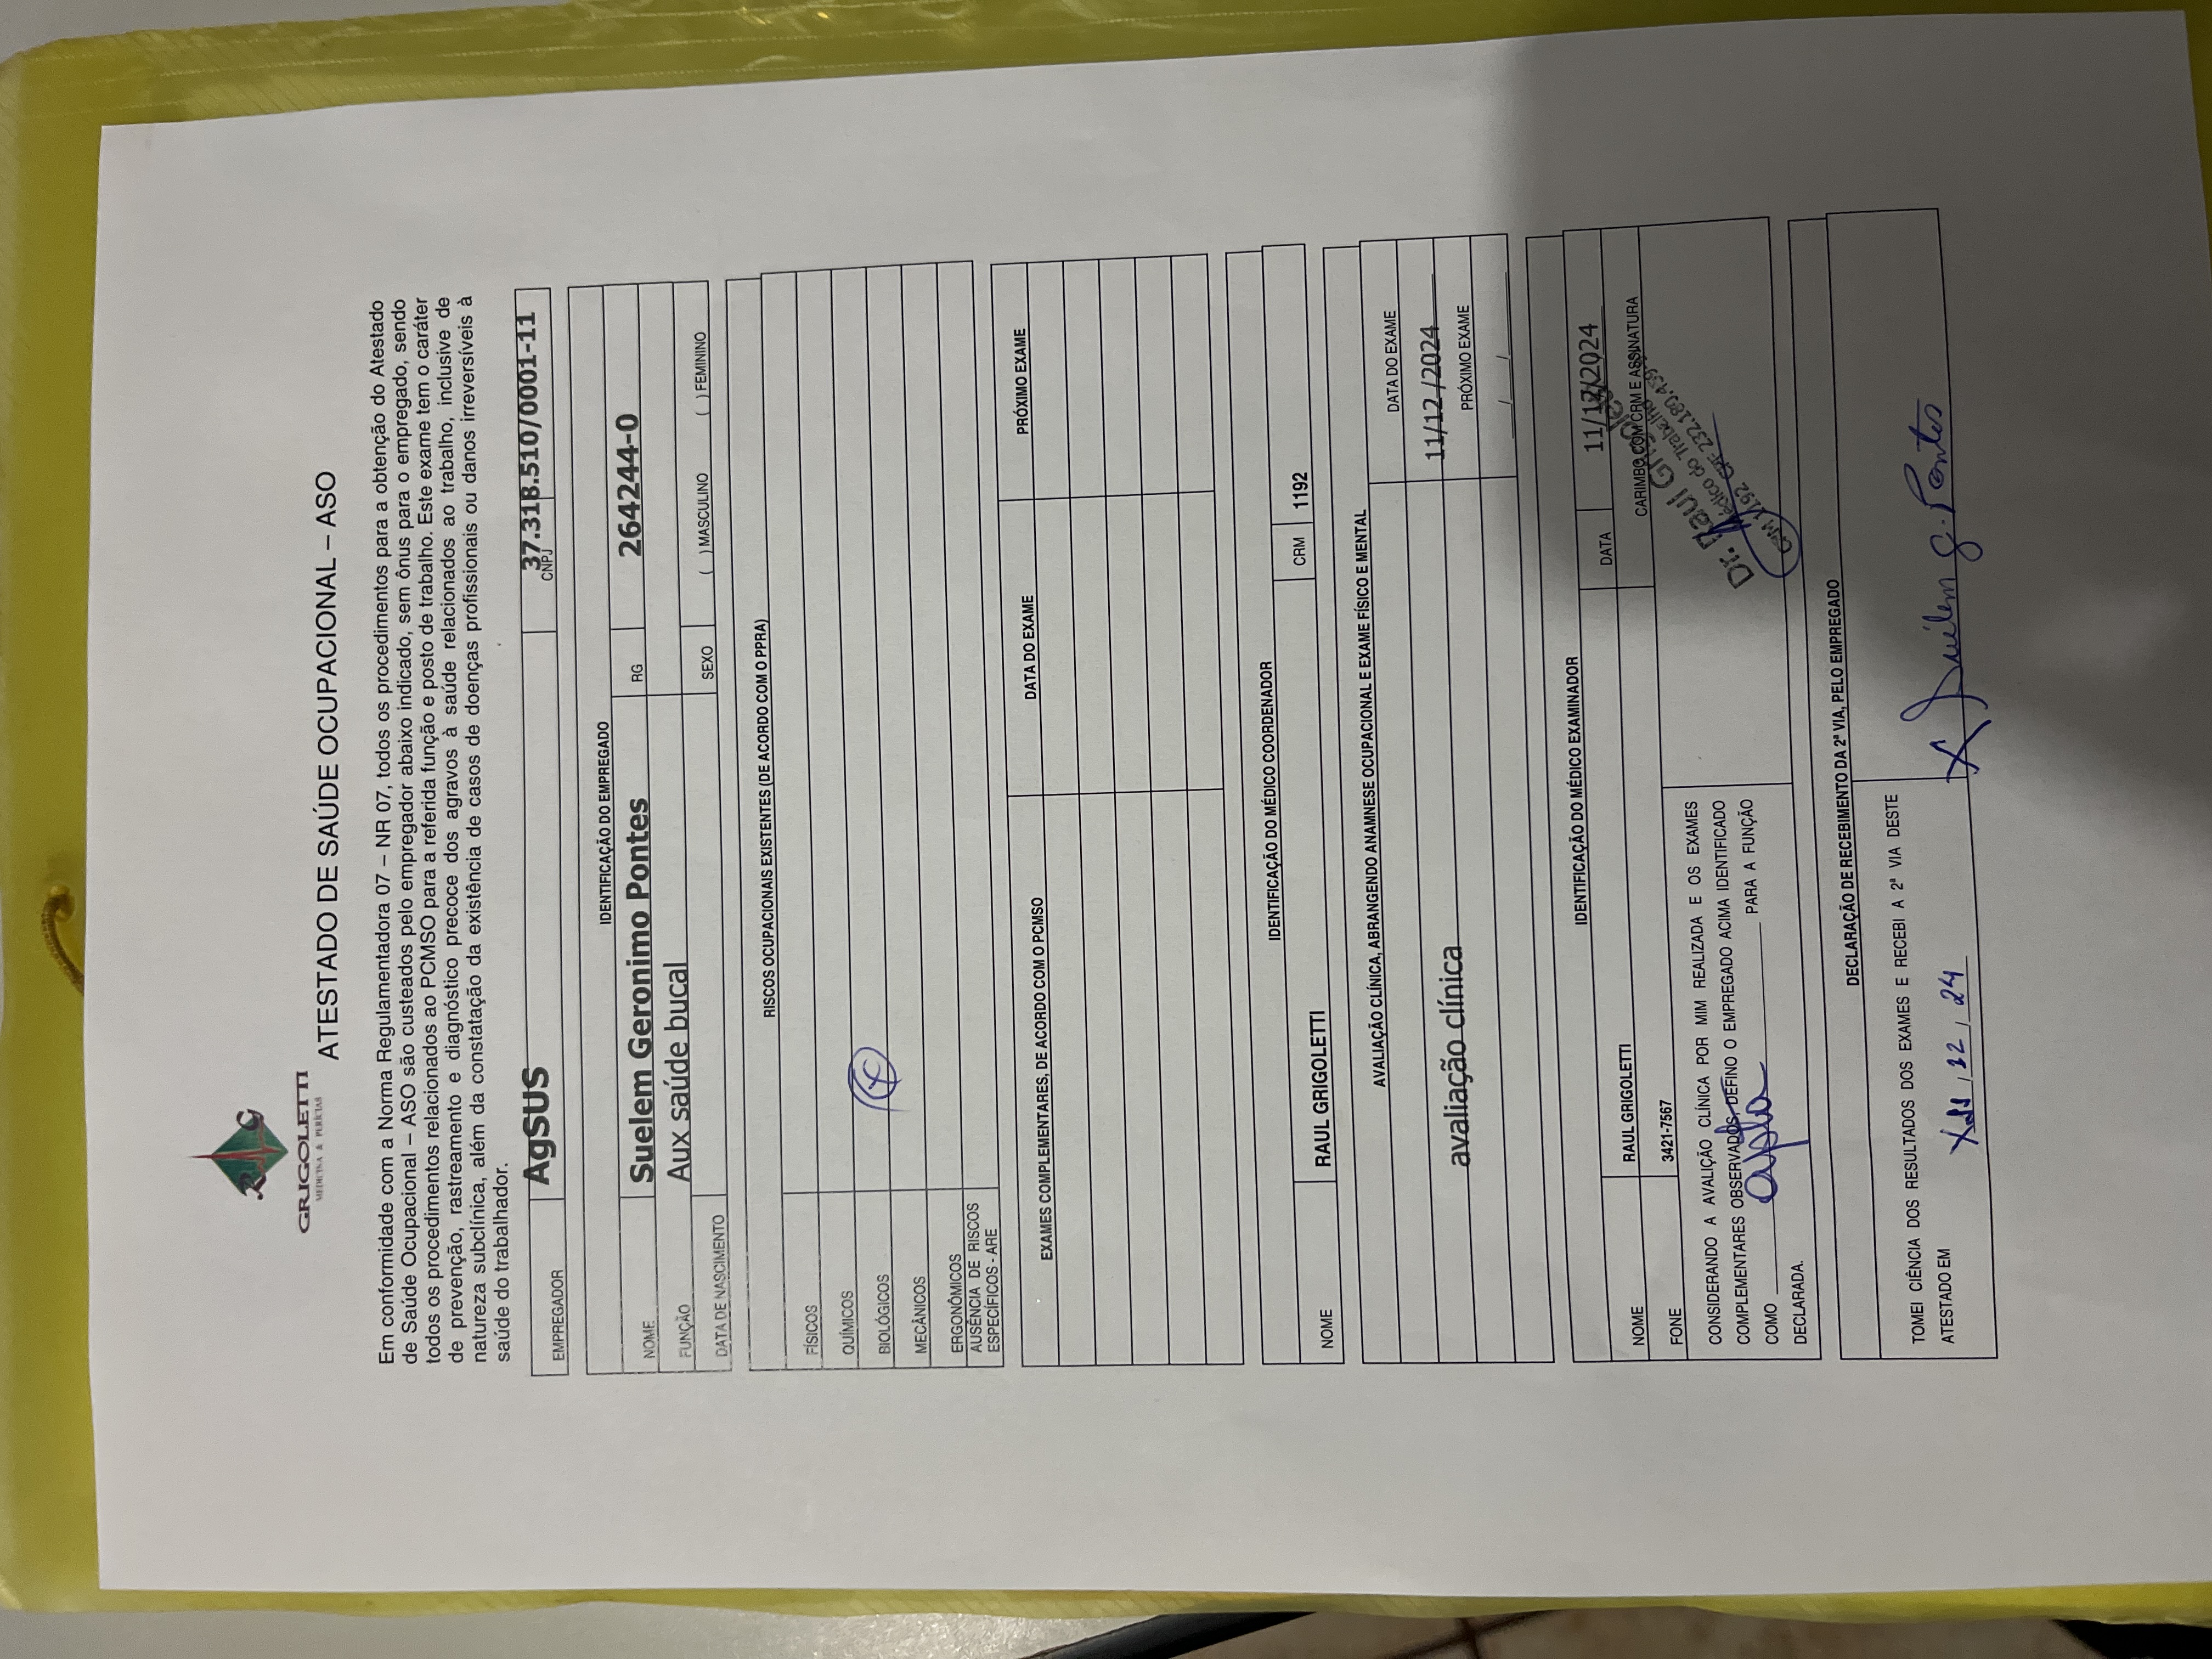 R G
GRIGOLETTI
MEDICINA & PERÍCIAS
ATESTADO DE SAÚDE OCUPACIONAL – ASO
Em conformidade com a Norma Regulamentadora 07 – NR 07, todos os procedimentos para a obtenção do Atestado
de Saúde Ocupacional – ASO são custeados pelo empregador abaixo indicado, sem ônus para o empregado, sendo
todos os procedimentos relacionados ao PCMSO para a referida função e posto de trabalho. Este exame tem o caráter
de prevenção, rastreamento e diagnóstico precoce dos agravos à saúde relacionados ao trabalho, inclusive de
natureza subclínica, além da constatação da existência de casos de doenças profissionais ou danos irreversíveis à
saúde do trabalhador.
EMPREGADOR AgSUS CNPJ 37.318.510/0001-11
IDENTIFICAÇÃO DO EMPREGADO
NOME Suelem Geronimo Pontes RG 264244-0
FUNÇÃO Aux saúde bucal
DATA DE NASCIMENTO SEXO ( ) MASCULINO ( ) FEMININO
RISCOS OCUPACIONAIS EXISTENTES (DE ACORDO COM O PPRA)
FÍSICOS
QUÍMICOS
BIOLÓGICOS X
MECÂNICOS
ERGONÔMICOS
AUSÊNCIA DE RISCOS
ESPECÍFICOS - ARE
EXAMES COMPLEMENTARES, DE ACORDO COM O PCMSO DATA DO EXAME PRÓXIMO EXAME
IDENTIFICAÇÃO DO MÉDICO COORDENADOR
NOME RAUL GRIGOLETTI CRM 1192
AVALIAÇÃO CLÍNICA, ABRANGENDO ANAMNESE OCUPACIONAL E EXAME FÍSICO E MENTAL
DATA DO EXAME
avaliação clínica 11/12 /2024
PRÓXIMO EXAME
___/___/______
IDENTIFICAÇÃO DO MÉDICO EXAMINADOR
NOME RAUL GRIGOLETTI DATA 11/12/2024
FONE 3421-7567 CARIMBO COM CRM E ASSINATURA
CONSIDERANDO A AVALIÇÃO CLÍNICA POR MIM REALIZADA E OS EXAMES
COMPLEMENTARES OBSERVADOS, DEFINO O EMPREGADO ACIMA IDENTIFICADO
COMO apta PARA A FUNÇÃO
DECLARADA.
Dr. Raul Grigoletti
Médico do Trabalho
CRM 1192 CPF 232.180.459
DECLARAÇÃO DE RECEBIMENTO DA 2ª VIA, PELO EMPREGADO
TOMEI CIÊNCIA DOS RESULTADOS DOS EXAMES E RECEBI A 2ª VIA DESTE
ATESTADO EM X 11 / 12 / 24
X Suélem G. Pontes